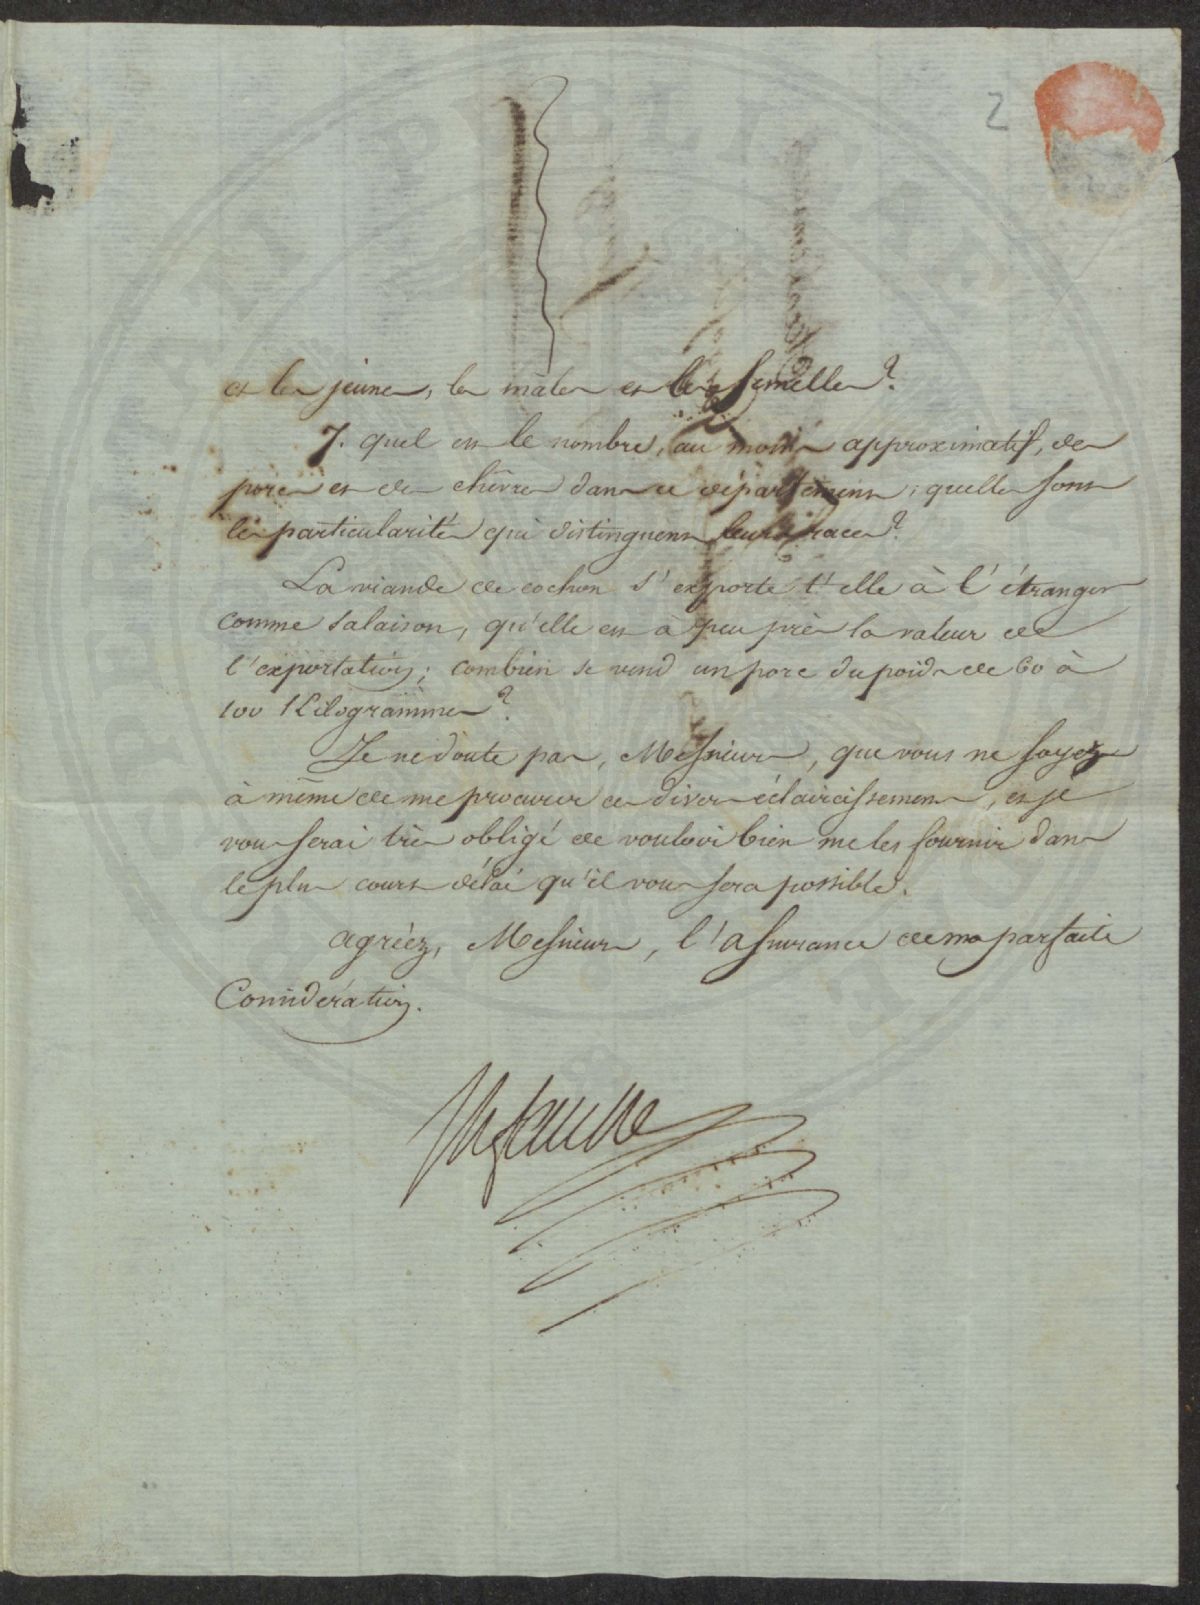 2
et les jeunes, les mâles et les femelles?
7. quel est le nombre, au moins approximatif, des
porcs et des chèvres dans ce département; quelles sont
les particularités qui distinguent leurs races?
La viande de cochon s'exporte t'elle à l'étranger
comme salaison, qu'elle est à peu près la valeur de
l'exportation; combien se vend un porc du poids de 60 à
100 Kilogrammes?
Je ne doute pas, Messieurs, que vous ne soyez
à même de me procurer ces divers éclaircissemens, et je
vous serai très obligé de vouloir bien me les fournir dans
le plus court délai qu'il vous sera possible.
agréez, Messieurs, l'assurance de ma parfaite
Considération.